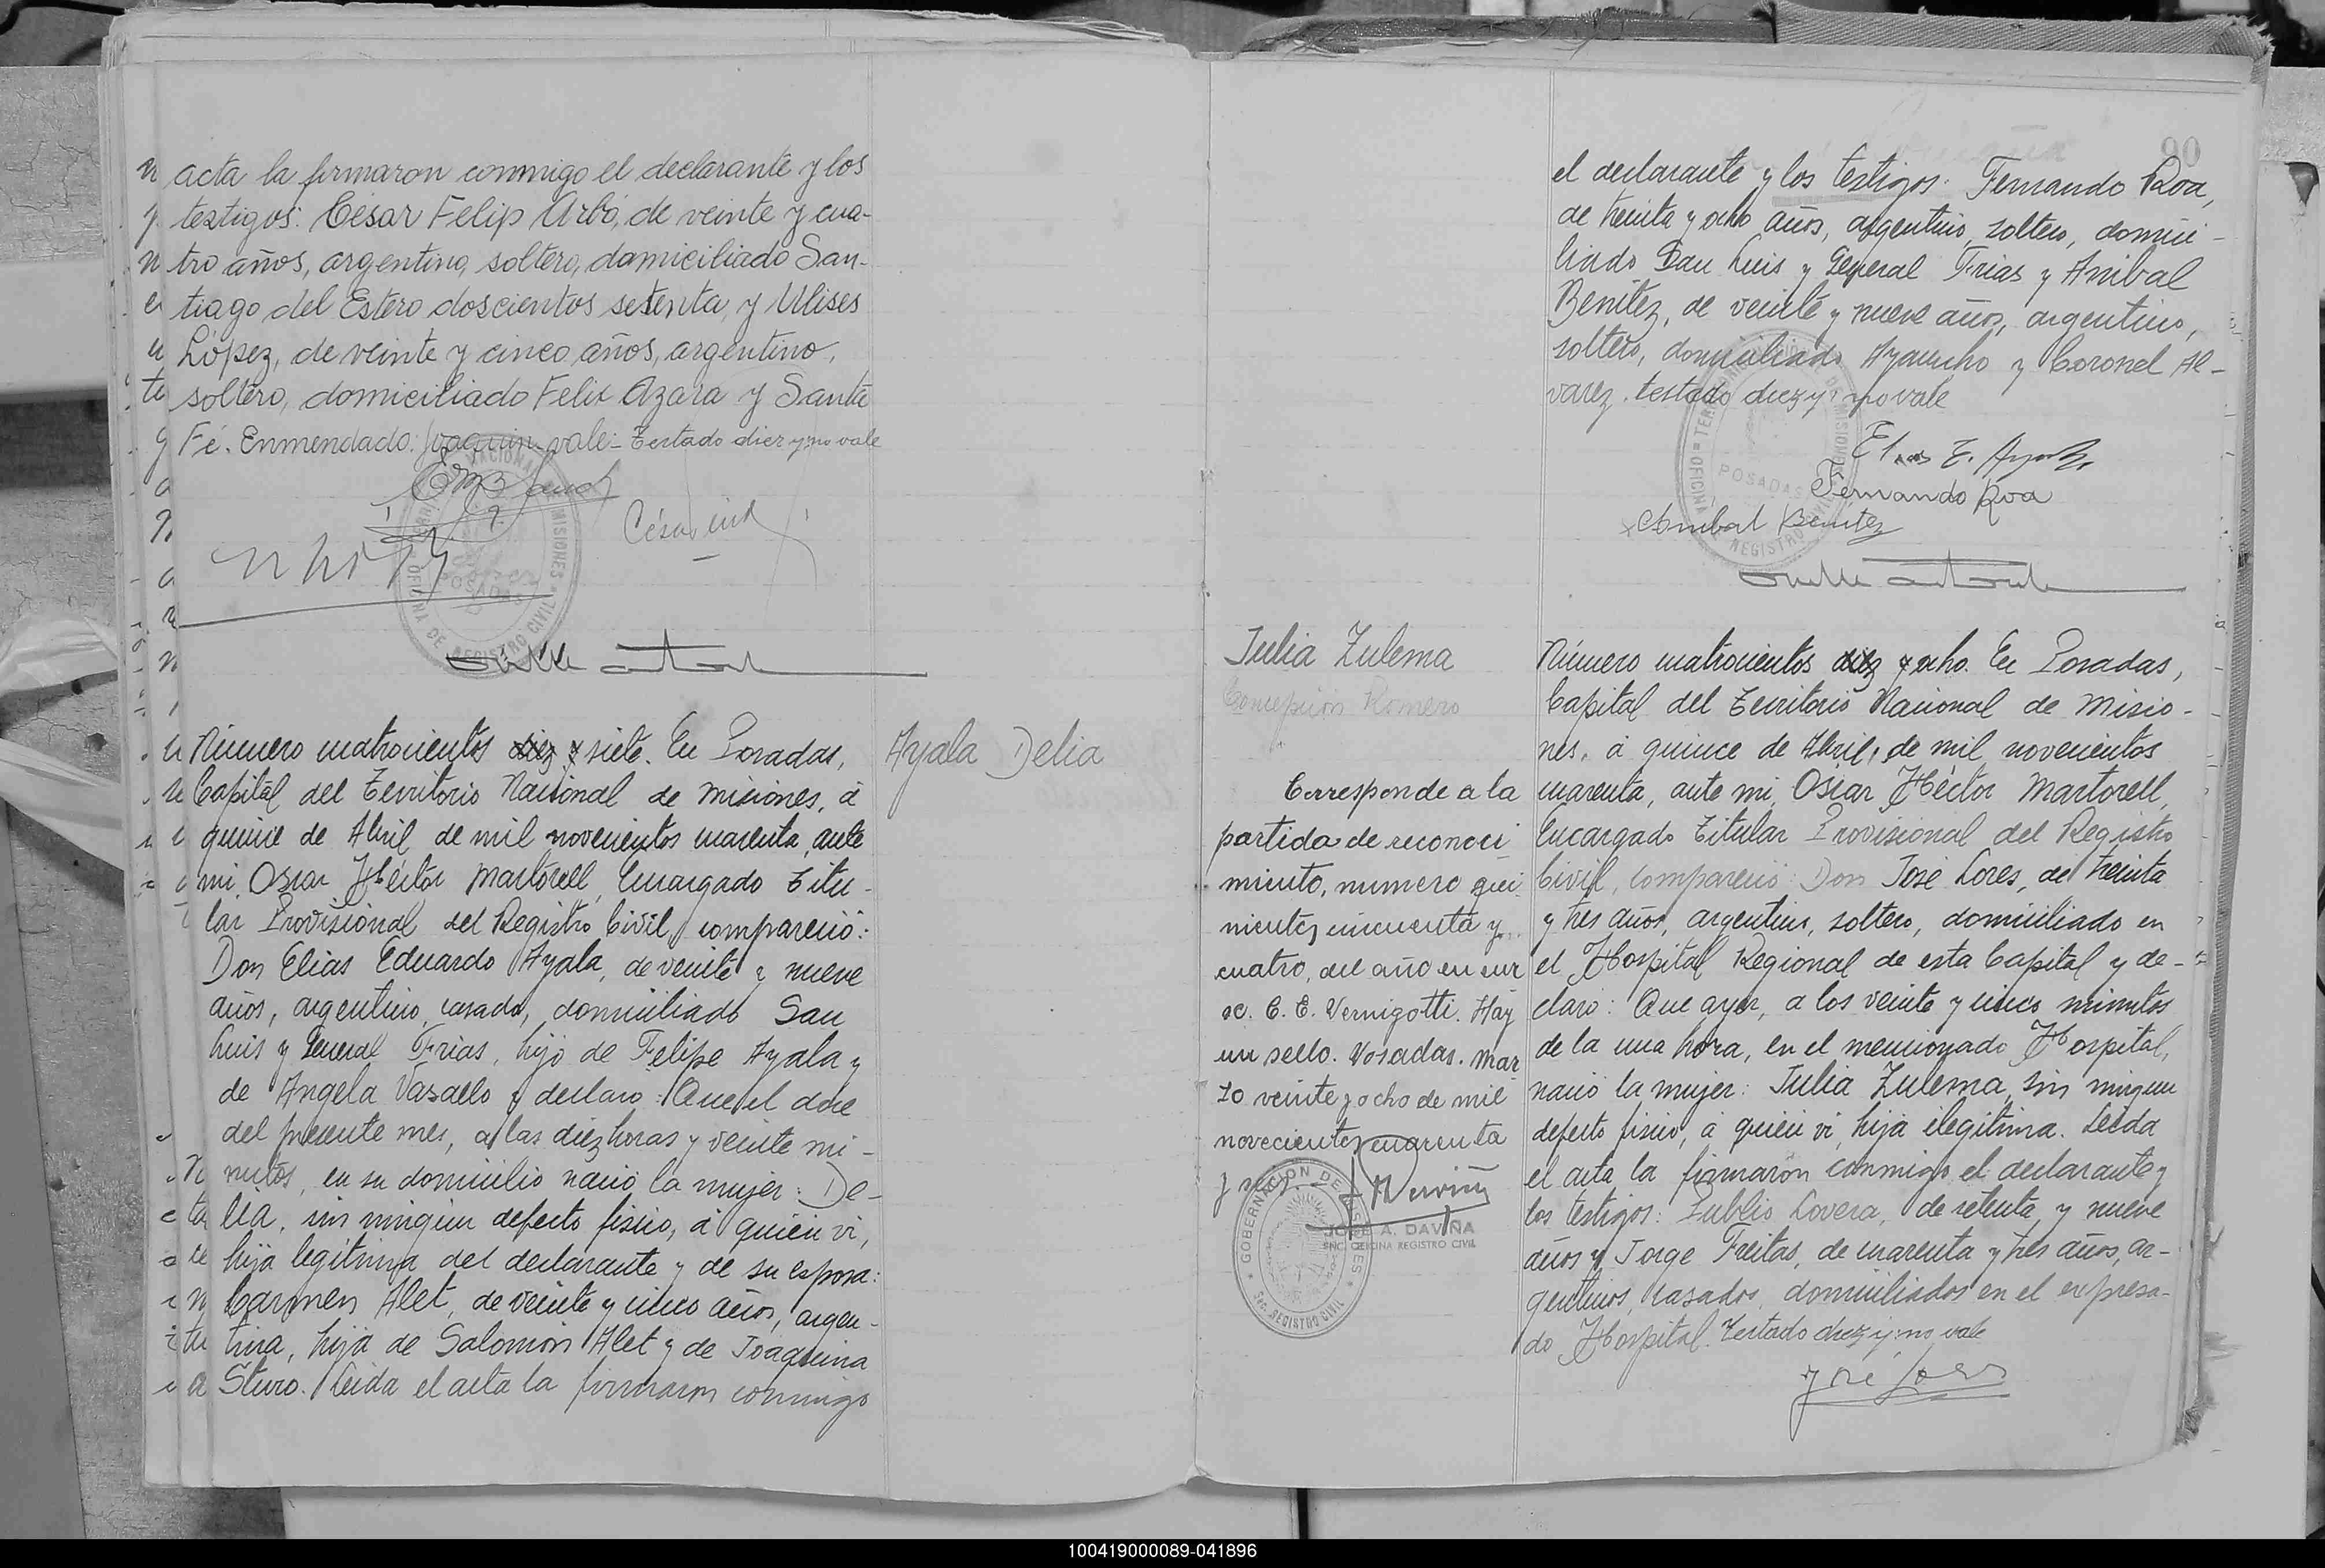 acta la firmaron conmigo el declarante y los
testigos: César Felip Arbó, de veinte y cua-
tro años, argentino, soltero, domiciliado San-
tiago del Estero doscientos setenta, y Ulises
López, de veinte y cinco años, argentino,
soltero, domiciliado Felix Azara y Santa
Fé. Enmendado: Joaquin-vale- Testado diez y:no vale
Número cuatrocientos diez y siete. En Posadas,
Capital del Territorio Nacional de Misiones, á
quince de Abril de mil novecientos cuarenta, ante
mi, Oscar Héctor Martorell, Encargado Titu-
lar Provisional del Registro Civil, compareció:
Don Elias Eduardo Ayala, de veinte y nueve
años, argentino, casado, domiciliado San
Luis y General Frias, hijo de Felipe Ayala y
de Angela Vasallo y declaro: Que el doce
del presente mes, a las diez horas y veinte mi-
nutos, en su domicilio nació la mujer: De-
lia, sin ningun defecto fisico, á quien vi,
hija legitima del declarante y de su esposa:
Carmen Alet, de veinte y cinco años, argen-
tina, hija de Salomón Alet y de Joaquina
Sturo. Leida el acta la firmaron conmigo
Ayala Delia
90
el declarante y los testigos: Fernando Roa,
de treinta y ocho años, argentino, soltero, domici-
liado San Luis y General Frias y Anibal
Benítez, de veinte y nueve años, argentino,
soltero, domiciliado Ayacucho y Coronel Al-
varez. testado diez y: no vale
Elias E. Ayala
Fernando Roa
Anibal Benítez
OFICINA DE REGISTRO CIVIL
POSADAS
MISIONES
Julia Zulema
Concepción Romero
Corresponde a la
partida de reconoci
miento, numero qui
nientos cincuenta y
cuatro, del año en cur
so. C. E. Vernigotti. Hay
un sello. Posadas. Mar
zo veinte y ocho de mil
novecientos cuarenta
y seis.-
JOSE A. DAVIÑA
ENC. OFICINA REGISTRO CIVIL
GOBERNACION DE MISIONES
Sec. REGISTRO CIVIL
Número cuatrocientos diez y ocho. En Posadas,
Capital del Territorio Nacional de Misio-
nes, á quince de Abril, de mil novecientos
cuarenta, ante mi, Oscar Héctor Martorell,
Encargado Titular Provisional del Registro
Civil, compareció: Don José Lores, de treinta
y tres años, argentino, soltero, domiciliado en
el Hospital Regional de esta Capital y de-
claró: Que ayer, a los veinte y cinco minutos
de la una hora, en el mencionado Hospital,
nació la mujer: Julia Zulema, sin ningun
defecto fisico, á quien vi, hija ilegitima. Leida
el acta la firmaron conmigo el declarante y
los testigos: Publio Lovera, de setenta y nueve
años y Jorge Freitas, de cuarenta y tres años, ar-
gentinos, casados, domiciliados en el expresa-
do Hospital. Testado diez y: no vale
José Lores
100419000089-041896